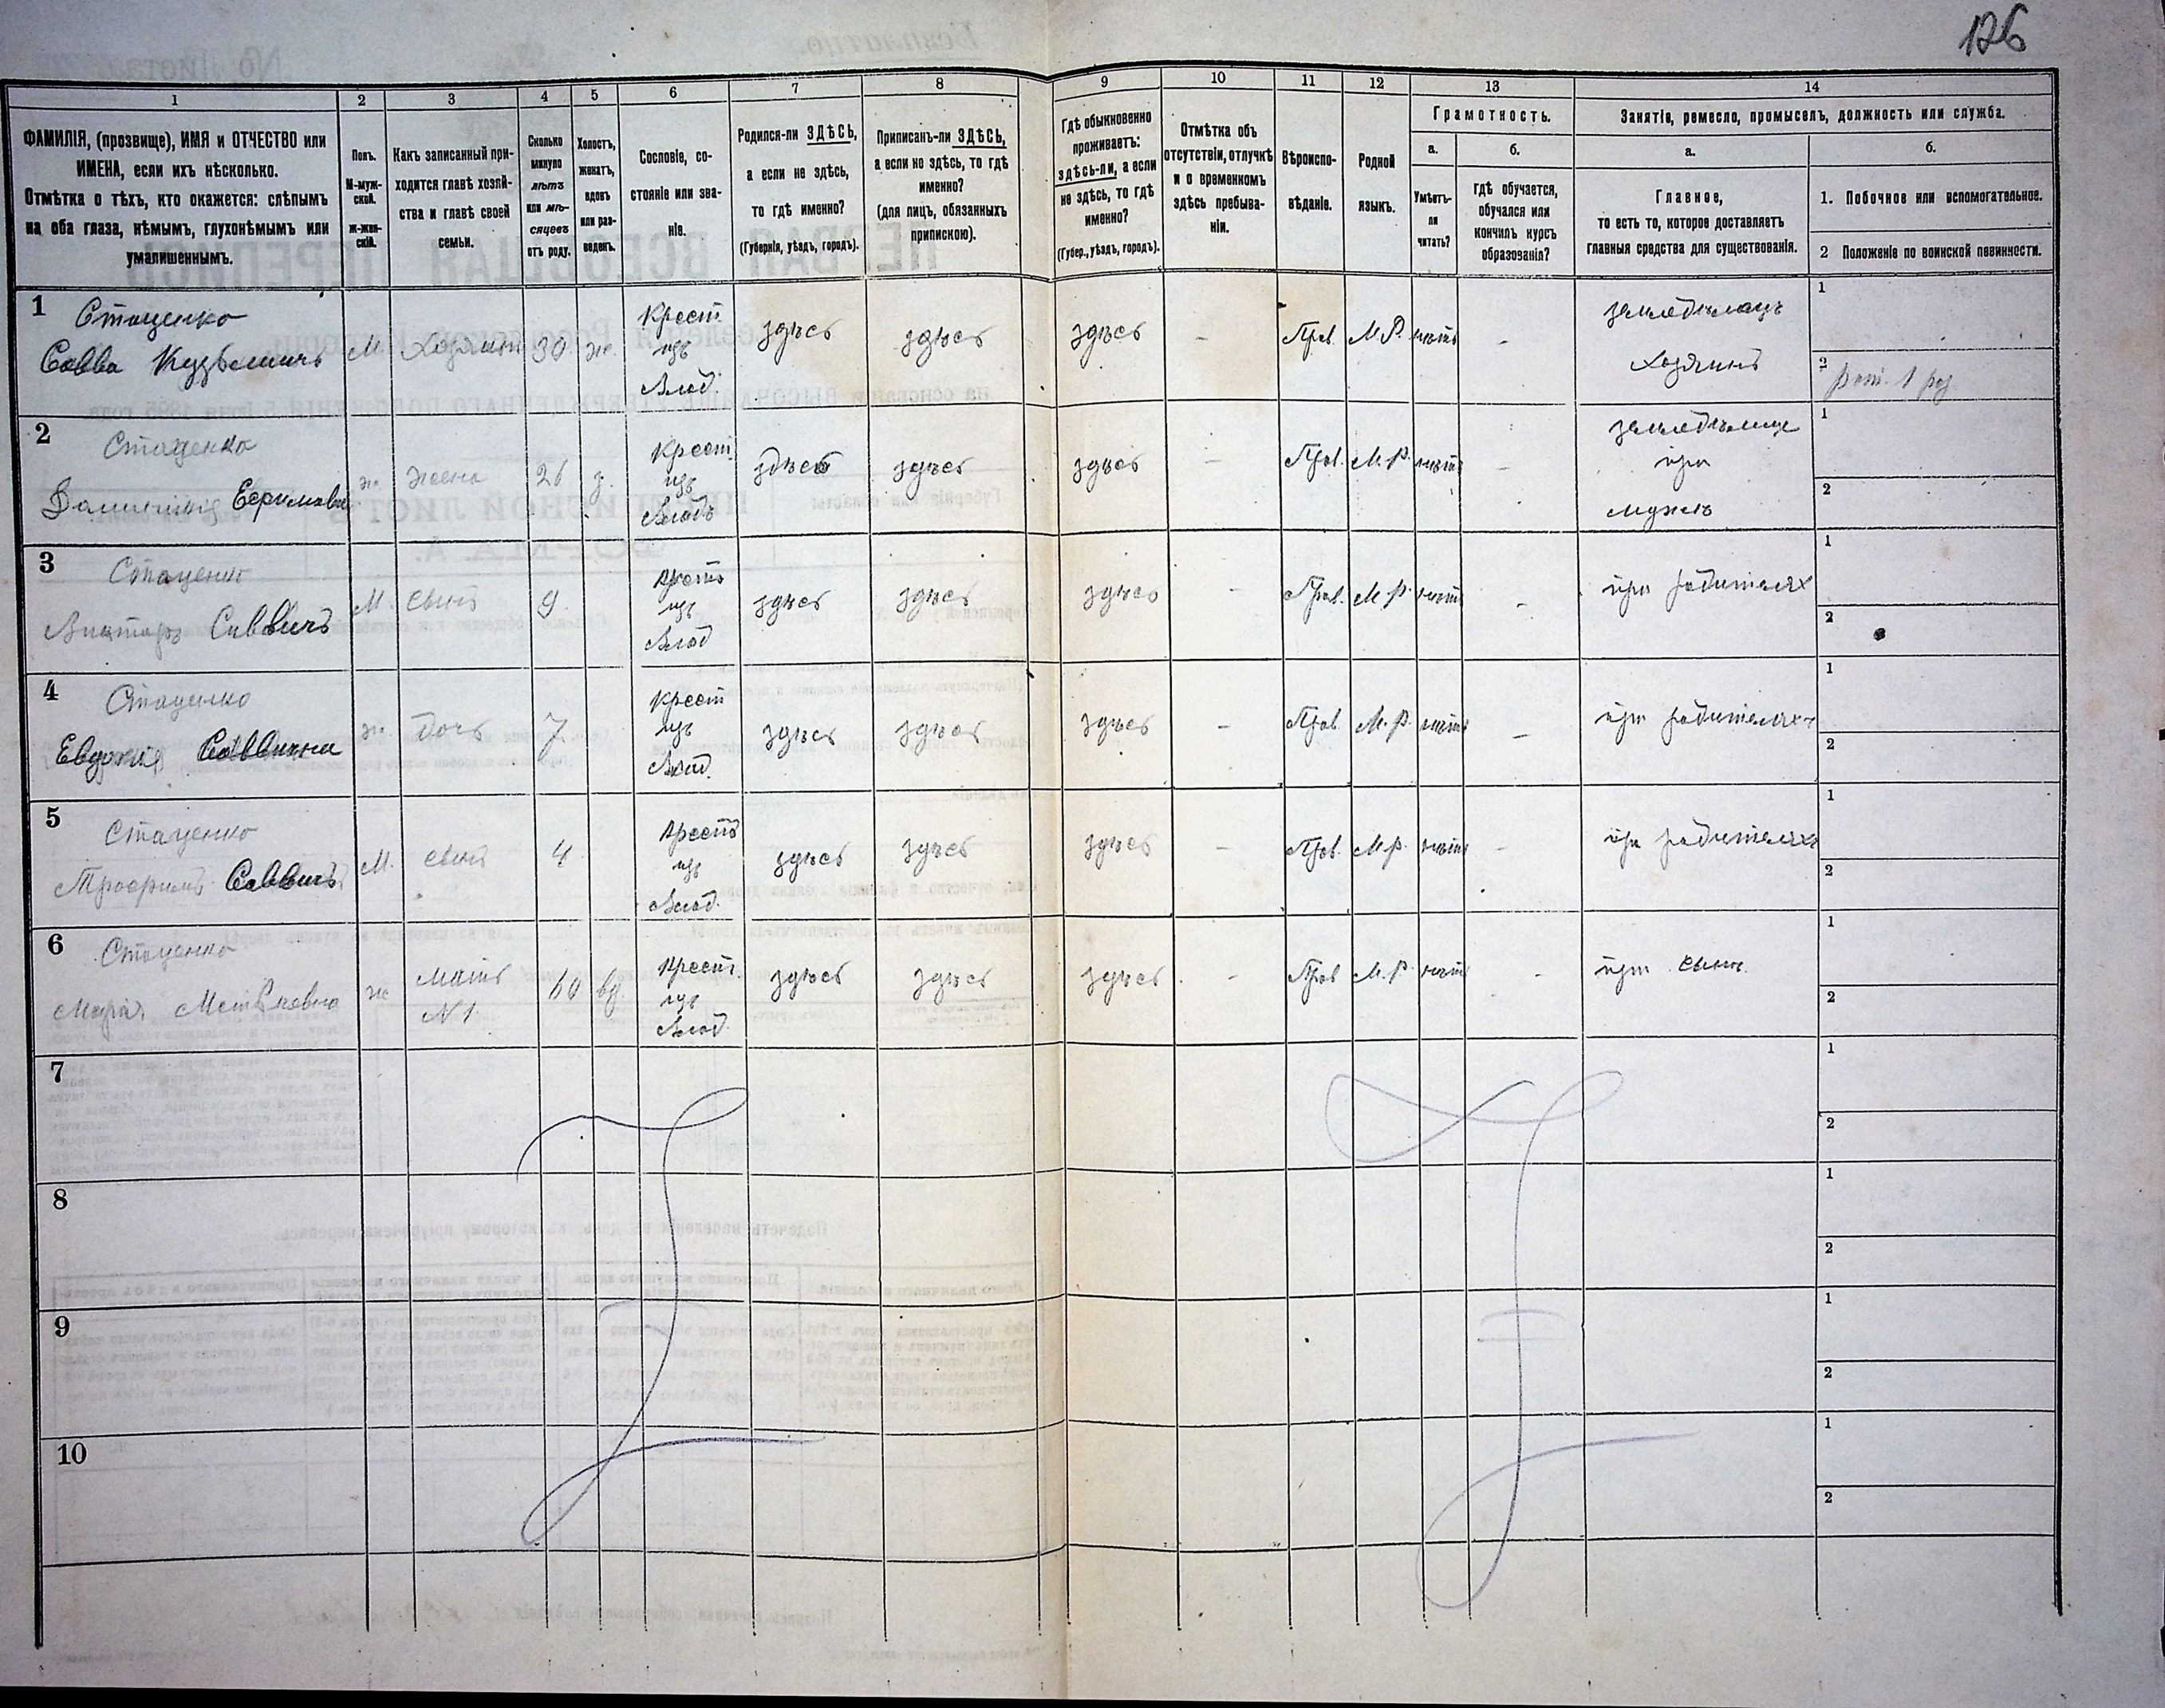 126
1
2
3
4
5
6
7
8
9
10
11
12
13
14
ФАМИЛІЯ, (прозвище), ИМЯ и ОТЧЕСТВО или
ИМЕНА, если ихъ нѣсколько.
Отмѣтка о тѣхъ, кто окажется: слѣпымъ
на оба глаза, нѣмымъ, глухонѣмымъ или
умалишеннымъ.
Полъ.
М-муж-
ской.
ж-жен-
скій.
Какъ записанный при-
ходится главѣ хозяй-
ства и главѣ своей
семьи.
Сколько
минуло
лѣтъ
или мѣ-
сяцевъ
отъ роду.
Холостъ,
женатъ,
вдовъ
или раз-
веденъ.
Сословіе, со-
стояніе или зва-
ніе.
Родился-ли ЗДѢСЬ,
а если не здѣсь,
то гдѣ именно?
(Губернія, уѣздъ, городъ).
Приписанъ-ли ЗДѢСЬ,
а если не здѣсь, то гдѣ
именно?
(для лицъ, обязанныхъ
припискою).
Гдѣ обыкновенно
проживаетъ:
здѣсь-ли, а если
не здѣсь, то гдѣ
именно?
(Губер., уѣздъ, городъ).
Отмѣтка объ
отсутствіи, отлучкѣ
и о временномъ
здѣсь пребыва-
ніи.
Вѣроиспо-
вѣданіе.
Родной
языкъ.
Грамотность.
а.
Умѣетъ-
ли
читать?
б.
гдѣ обучается,
обучался или
кончилъ курсъ
образованія?
Занятіе, ремесло, промыселъ, должность или служба.
а.
Главное,
то есть то, которое доставляетъ
главныя средства для существованія.
б.
1. Побочное или вспомогательное.
2 Положеніе по воинской повинности.
1
Стаценко
Савва Кузьмичъ
М.
Хозяинъ
30
ж.
Крест.
изъ
Влад.
здѣсь
здѣсь
здѣсь
-
Прав.
М.Р.
нѣтъ
-
земледѣлецъ
Хозяинъ
1
2
рат. 1 раз
2
Стаценко
Ефимовна
ж.
жена
26
з.
Крест.
изъ
Влад.
здѣсь
здѣсь
здѣсь
-
Прав.
М.Р.
нѣтъ
-
при
мужѣ
1
2
3
Стаценко
Викторъ Саввичъ
М.
сынъ
9.
Крест.
изъ
Влад.
здѣсь
здѣсь
здѣсь
-
Прав.
М.Р.
нѣтъ
-
при родителяхъ
1
2
4
Стаценко
Евдокія Саввична
ж.
дочь
7.
Крест.
изъ
Влад.
здѣсь
здѣсь
здѣсь
-
Прав.
М.Р.
нѣтъ
-
при родителяхъ
1
2
5
Стаценко
Трофимъ Саввичъ
М.
сынъ
4
Крест.
изъ
Влад.
здѣсь
здѣсь
здѣсь
-
Прав.
М.Р.
нѣтъ
-
при родителяхъ
1
2
6
Стаценко
Марія
ж
Мать
N 1.
60
вд.
Крест.
изъ
Влад.
здѣсь
здѣсь
здѣсь
-
Прав
М.Р.
нѣтъ
-
при сынѣ
1
2
7
1
2
8
1
2
9
1
2
10
1
2